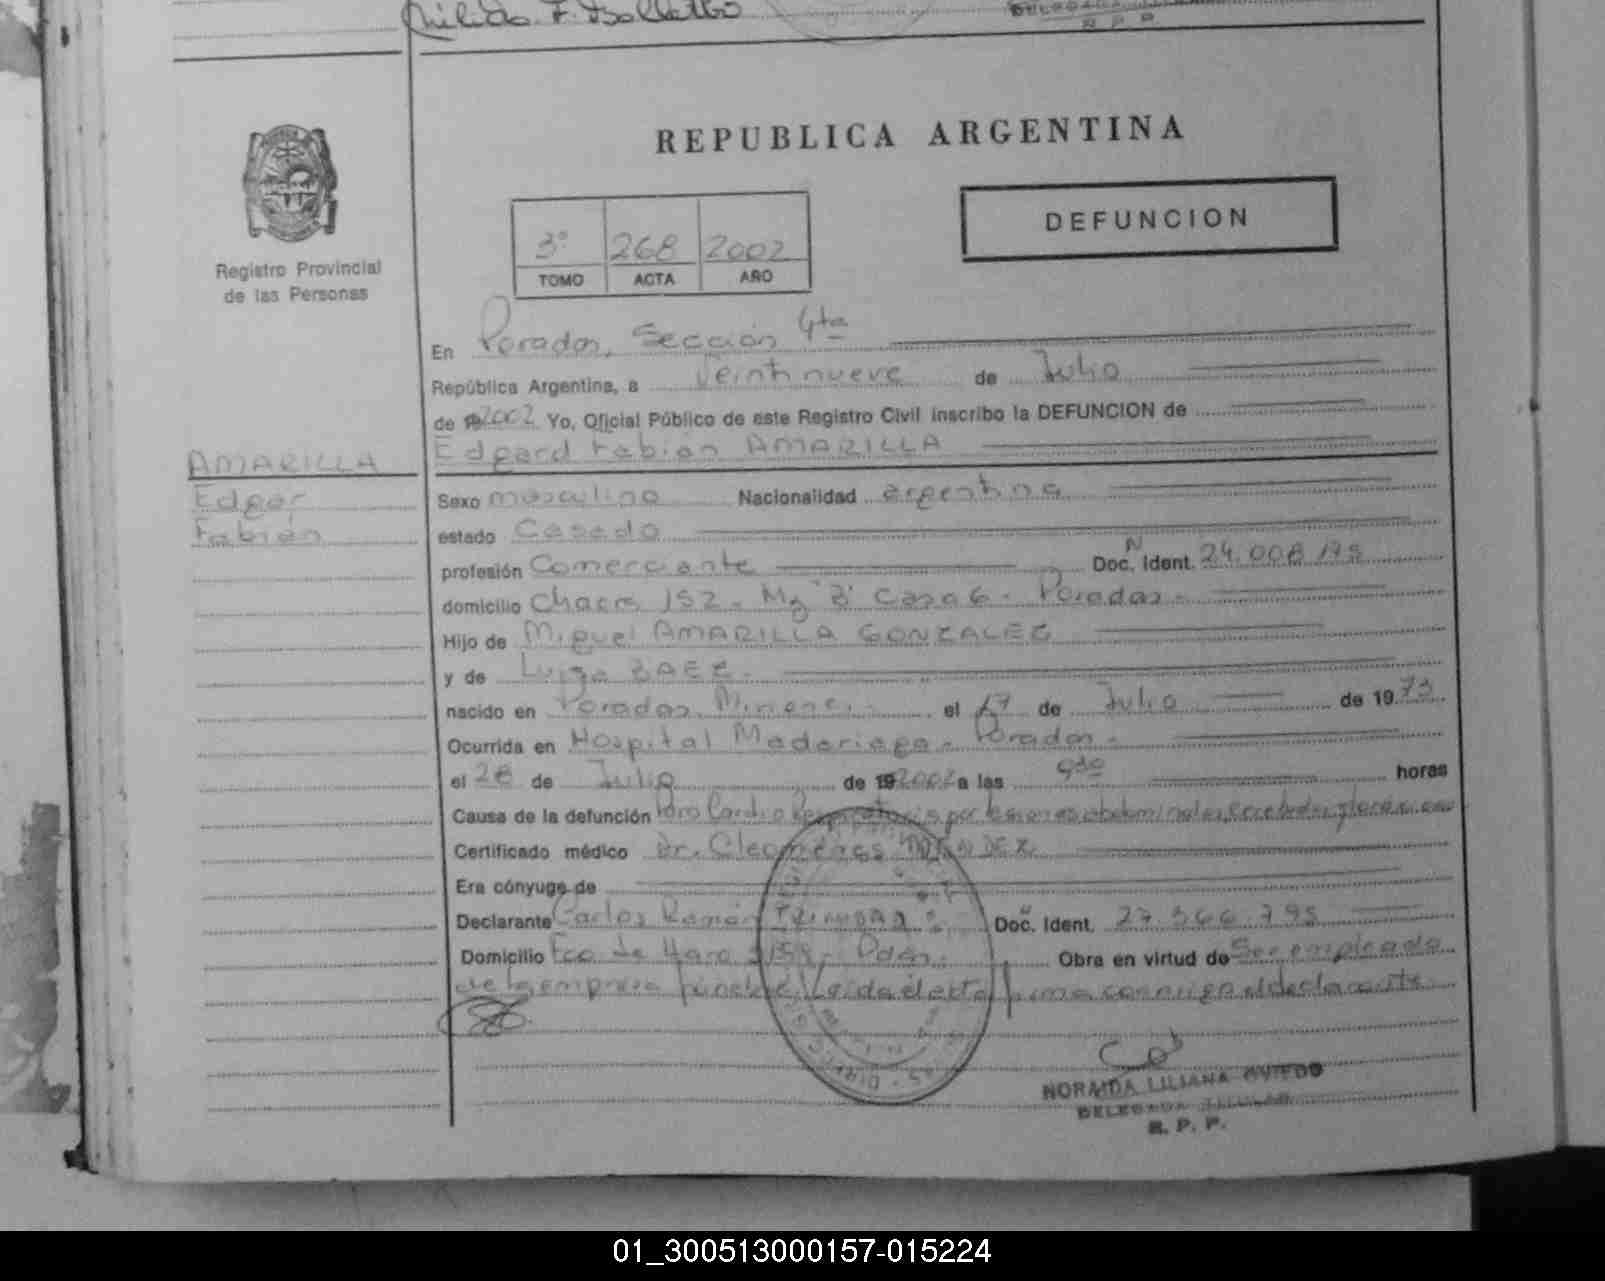 REPUBLICA ARGENTINA
Registro Provincial
de las Personas
3º 268 2002
TOMO ACTA AÑO
DEFUNCION
En Posadas, Sección 4ta
República Argentina, a Veintinueve de Julio
de 2002 Yo, Oficial Público de este Registro Civil inscribo la DEFUNCION de
Edgard Fabián AMARILLA
AMARILLA
Edgar
Fabián
Sexo masculino Nacionalidad argentina
estado Casado
profesión Comerciante Doc. Ident. 24.008.195
domicilio Chacra 152 - Mz "B" Casa 6 - Posadas -
Hijo de Miguel AMARILLA GONZALEZ
y de Luisa BAEZ -
nacido en Posadas, Misiones - el 17 de Julio de 1973
Ocurrida en Hospital Madariaga - Posadas -
el 28 de Julio de 2002 a las horas
Causa de la defunción Paro Cardio Respiratorio por lesiones abdominales,
Certificado médico Dr.
Era cónyuge de
Declarante Carlos Ramón Doc. Ident. 27.566.795
Domicilio Fco de Haro Pdas - Obra en virtud de Ser empleado
de la empresa fúnebre. Leída el acta firma conmigo el declarante.
NORAIDA LILIANA OVIEDO
DELEGADA TITULAR
R. P. P.
01_300513000157-015224